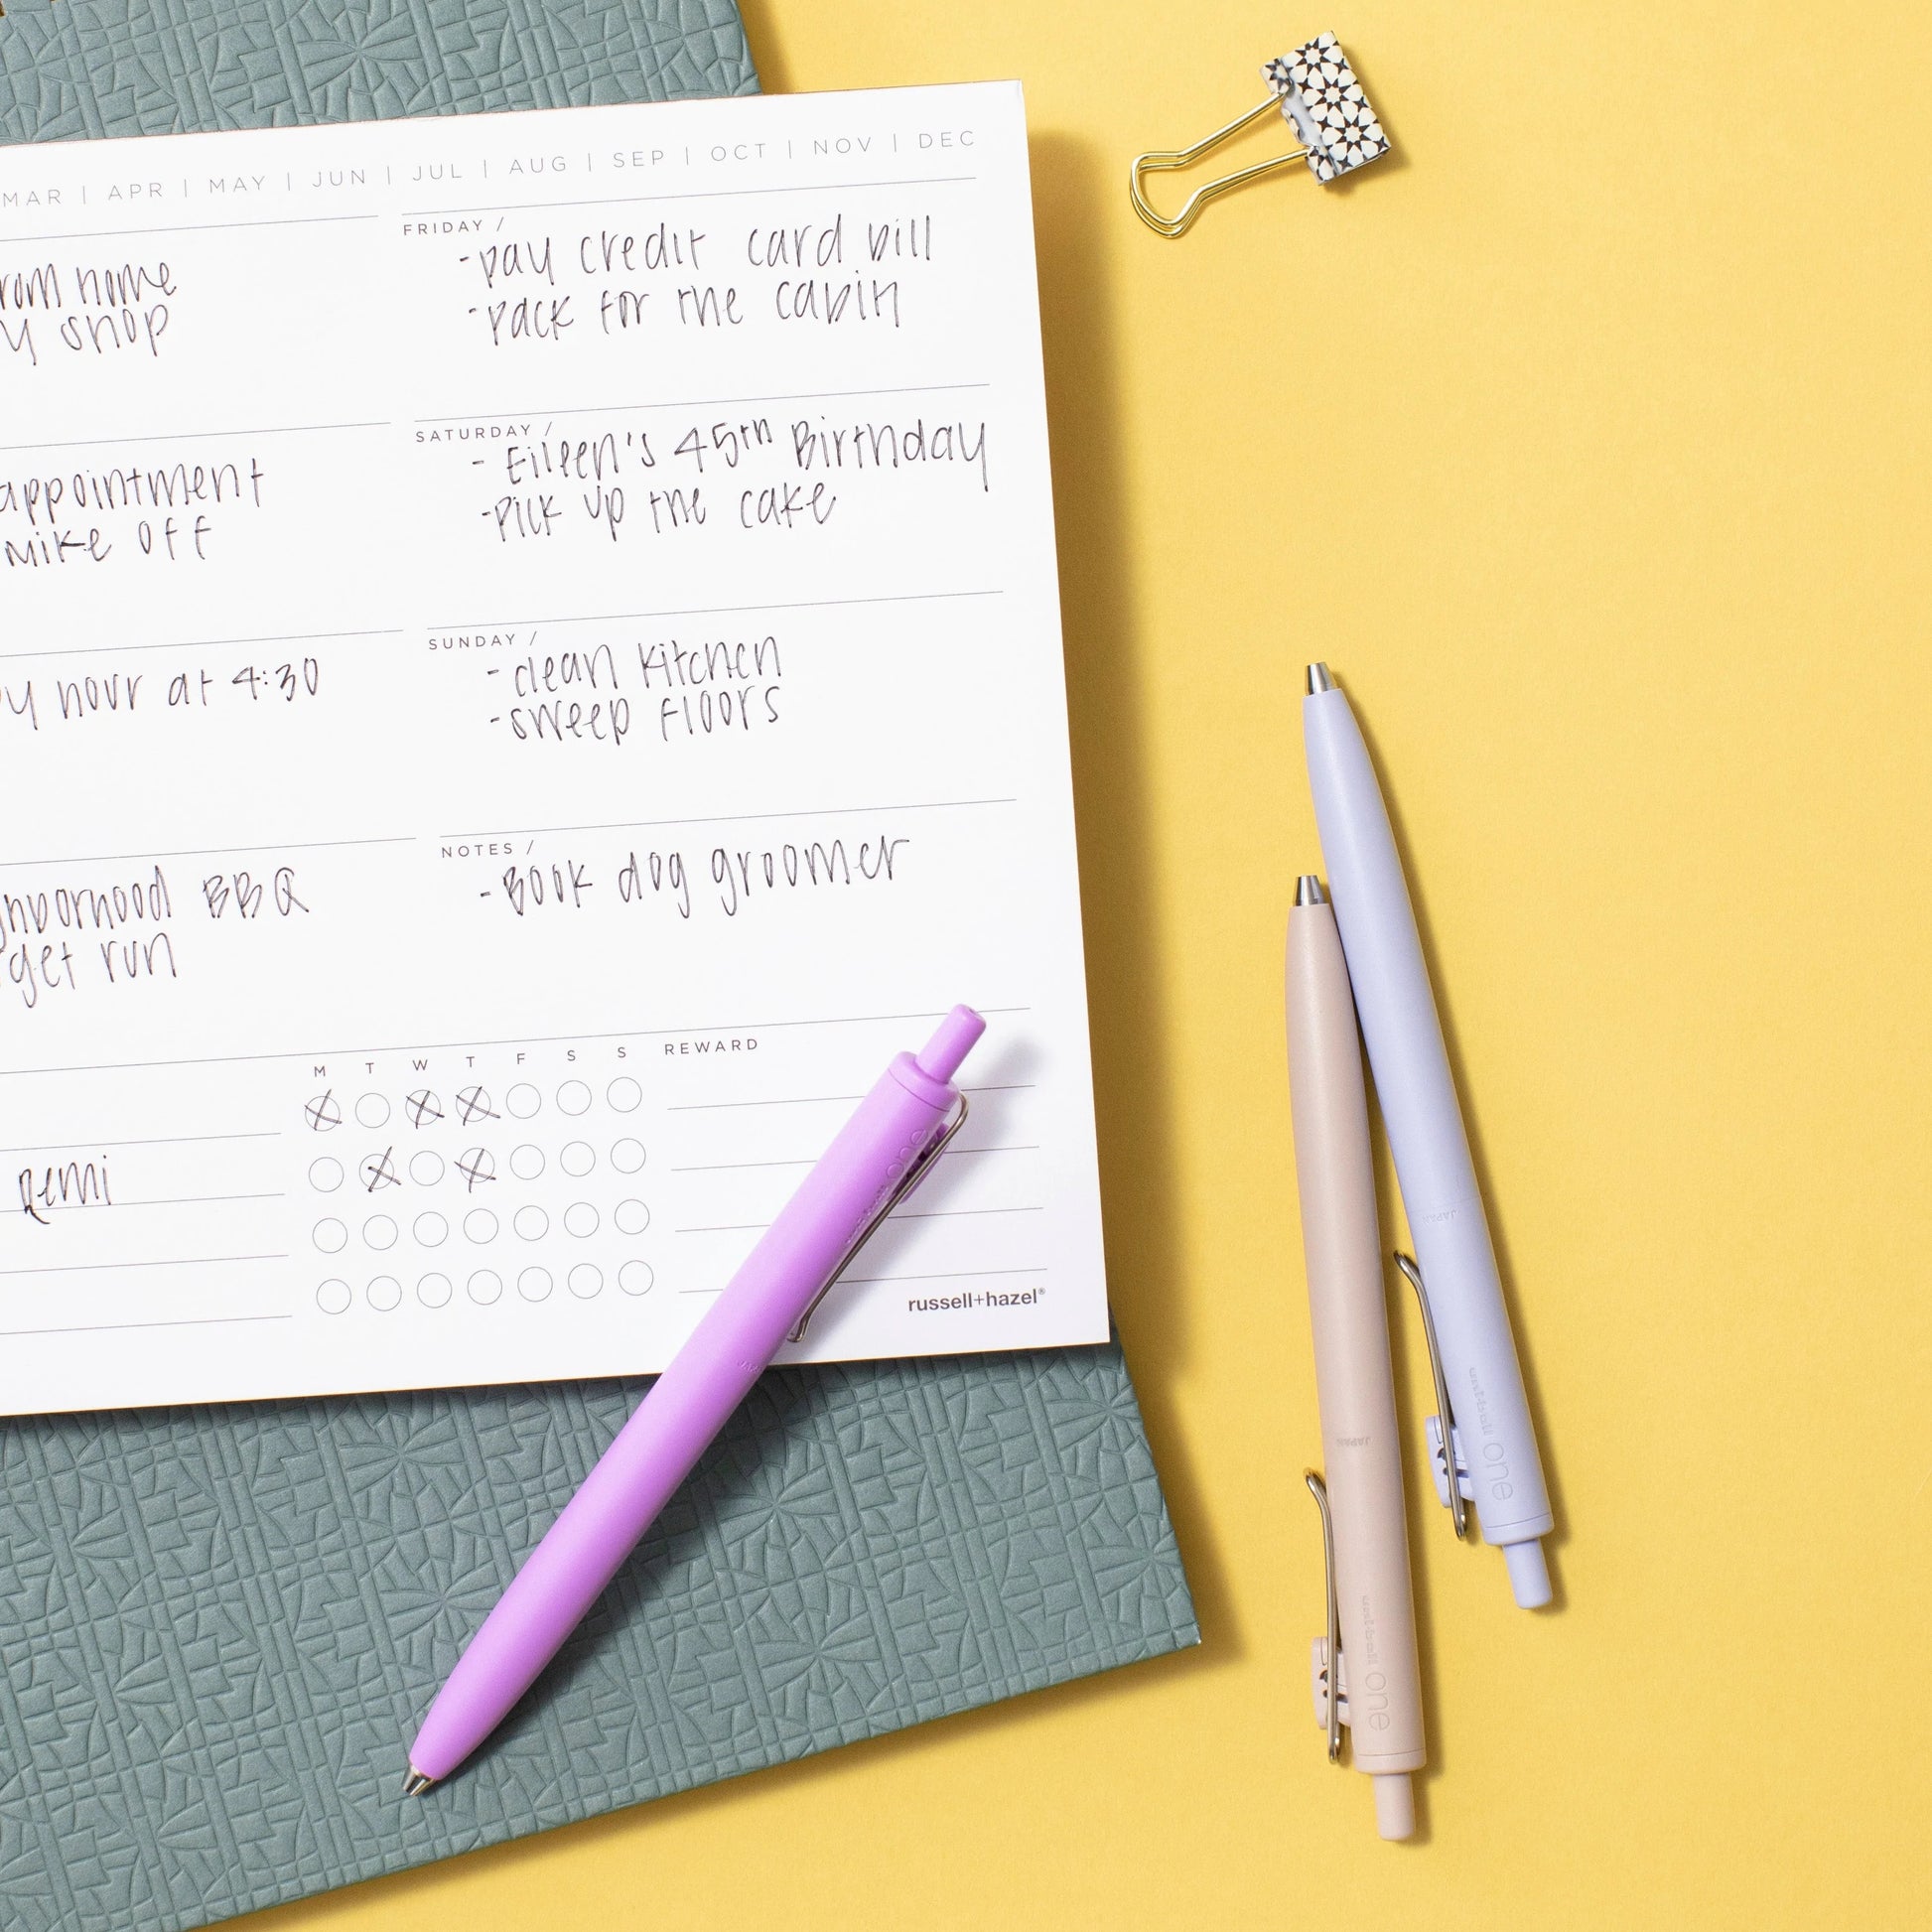 MAR | APR | MAY | JUN | JUL | AUG | SEP | OCT | NOV | DEC
rom home
y shop
appointment
Mike off
y hour at 4:30
ghborhood BBQ
get run
FRIDAY /
-pay credit card bill
-pack for the cabin
SATURDAY /
- Eileen's 45th Birthday
-Pick up the cake
SUNDAY /
- clean kitchen
-sweep floors
NOTES /
-Book dog groomer
M T W T F S S REWARD
Remi
russell+hazel®
JAPAN
one
JAPAN
one
one